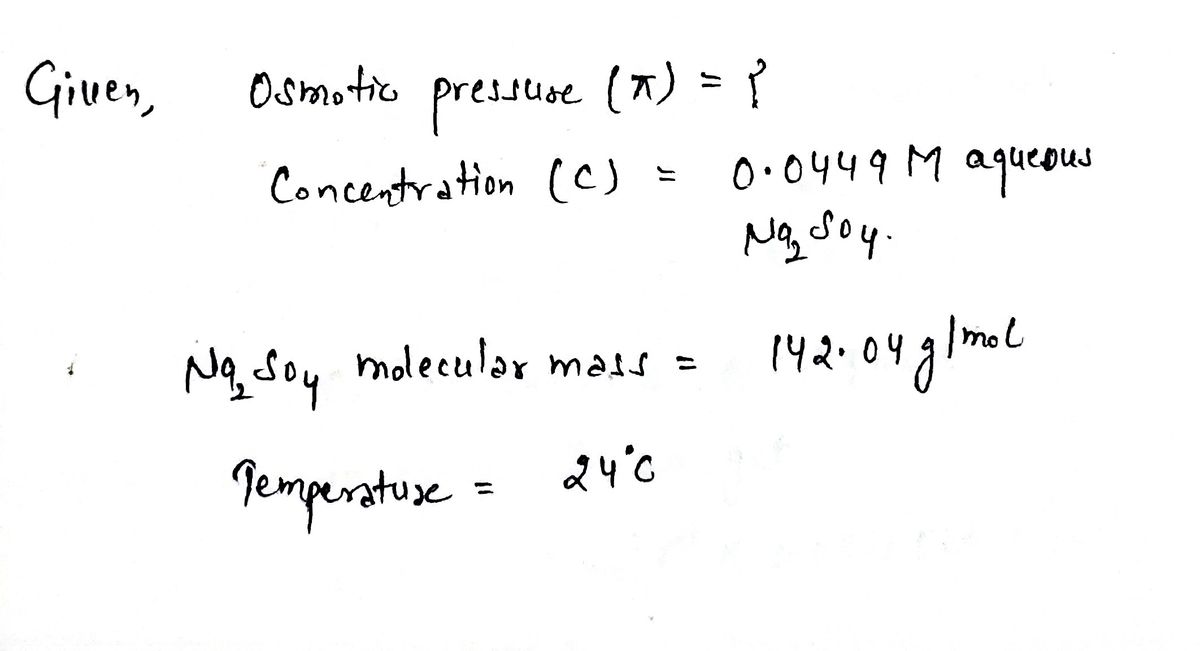 Given, Osmotic pressure (π) = ?
Concentration (C) = 0.0449 M aqueous
Na₂SO₄.
Na₂SO₄ molecular mass = 142.04 g/mol
Temperature = 24°C